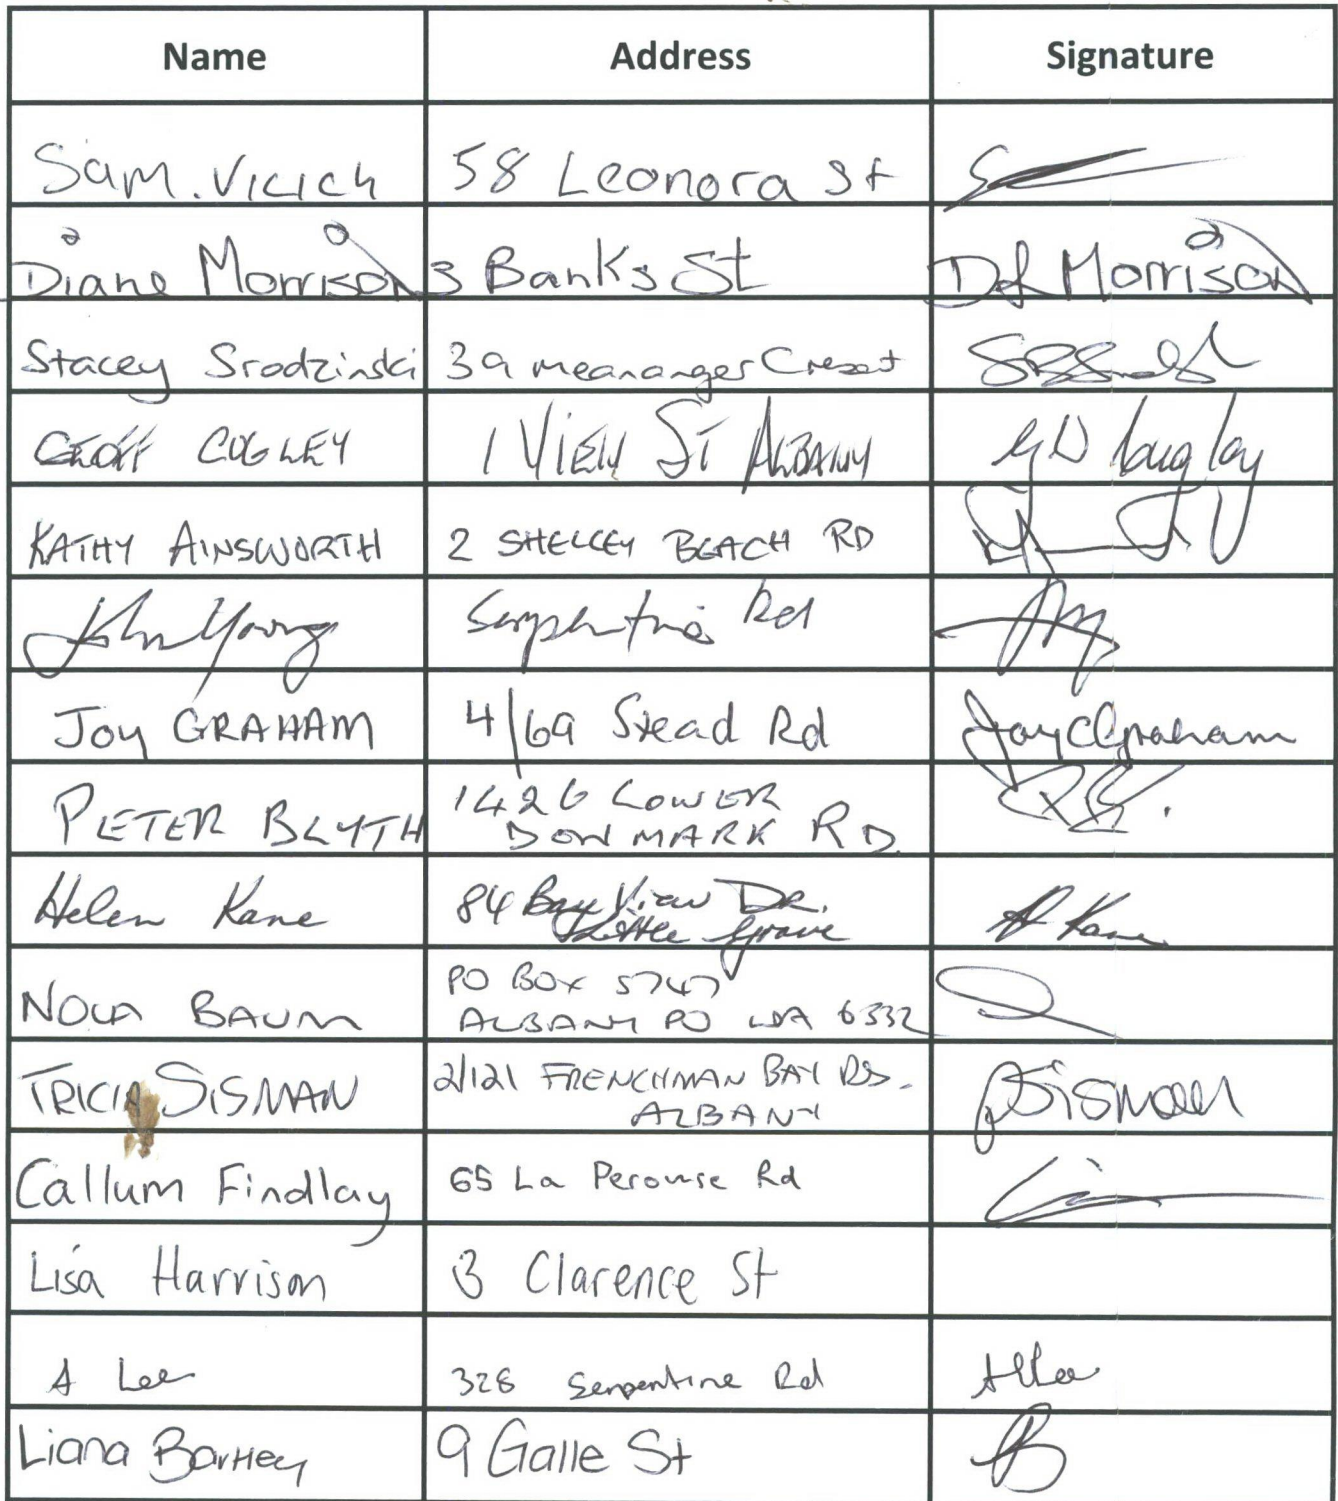 Name Address Signature
Sam. Vicich 58 Leonora St
Diane Morrison 3 Banks St DL Morrison
Stacey Srodzinski 39 meananger Cresent
GEOFF CUGLEY 1 VIEW ST ALBANY GD Cugley
KATHY AINSWORTH 2 SHELLEY BEACH RD
John Young Serpentine Rd
Joy GRAHAM 4/69 Stead Rd Joy C Graham
PETER BLYTH 1426 LOWER
DENMARK RD.
Helen Kane 84 Bay View Dr. H Kane
Little Grove
NOLA BAUM PO BOX 5747
ALBANY PO WA 6332
TRICIA SISMAN 2/121 FRENCHMAN BAY RD. PSisman
ALBANY
Callum Findlay 65 La Perouse Rd
Lisa Harrison 3 Clarence St
A Lee 328 Serpentine Rd ALee
Liana Bartley 9 Galle St